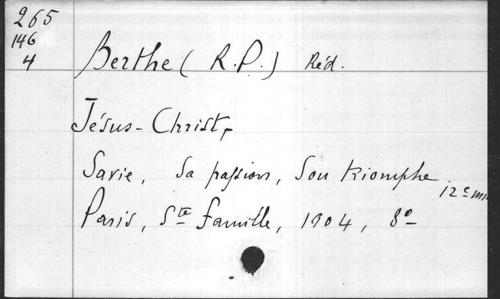 265
146
4
Berthe ( R.P.) Réd.
Jésus-Christ,
Savie, Sa passion, Son triomphe
12e
Paris, Ste famille, 1904, 8º